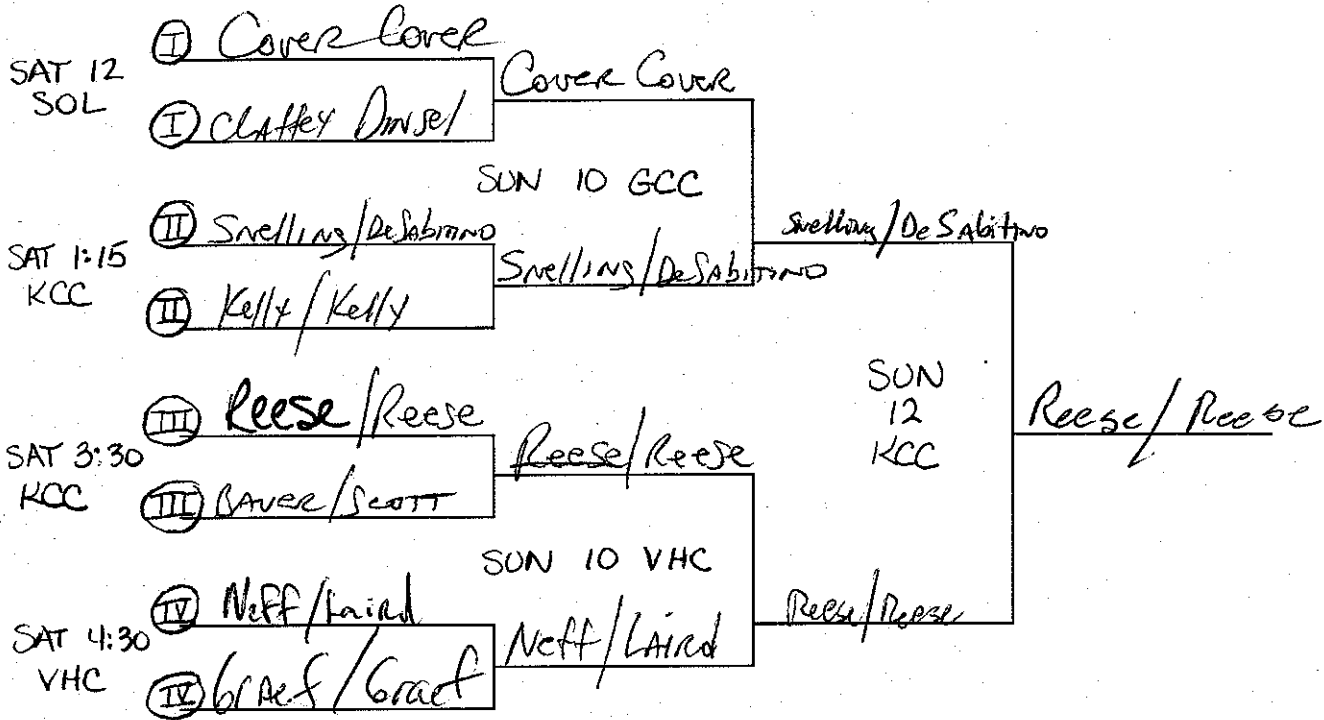 SAT 12
SOL
I Cover Cover
I Claffey Dinsel
Cover Cover
SUN 10 GCC
SAT 1:15
KCC
II Snelling/DeSabitino
II Kelly/Kelly
Snelling/DeSabitino
Snelling/DeSabitino
SAT 3:30
KCC
III Reese/Reese
III Bauer/Scott
Reese/Reese
SUN 10 VHC
SAT 4:30
VHC
IV Neff/Laird
IV Graef/Graef
Neff/Laird
Reese/Reese
SUN
12
KCC
Reese/Reese